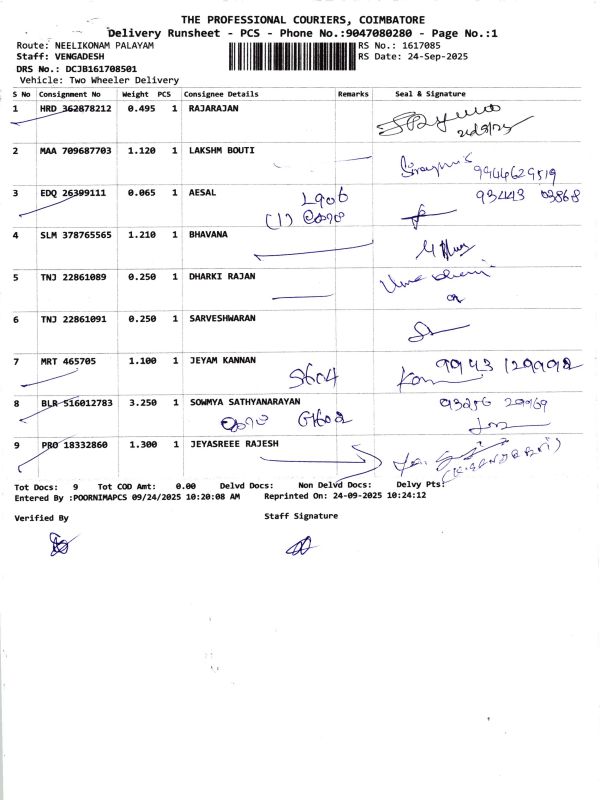 THE PROFESSIONAL COURIERS, COIMBATORE
Delivery Runsheet - PCS - Phone No.:9047080280 - Page No.:1
Route: NEELIKONAM PALAYAM RS No.: 1617085
Staff: VENGADESH RS Date: 24-Sep-2025
DRS No.: DCJB161708501
Vehicle: Two Wheeler Delivery
S No Consignment No Weight PCS Consignee Details Remarks Seal & Signature
1 HRD 362878212 0.495 1 RAJARAJAN
2 MAA 709687703 1.120 1 LAKSHM BOUTI
9944629519
3 EDQ 26399111 0.065 1 AESAL 93443 03868
L906
4 SLM 378765565 1.210 1 BHAVANA
5 TNJ 22861089 0.250 1 DHARKI RAJAN
6 TNJ 22861091 0.250 1 SARVESHWARAN
7 MRT 465705 1.100 1 JEYAM KANNAN
S604
8 BLR 516012783 3.250 1 SOWMYA SATHYANARAYAN
G1602
9 PRO 18332860 1.300 1 JEYASREEE RAJESH
Tot Docs: 9 Tot COD Amt: 0.00 Delvd Docs: Non Delvd Docs: Delvy Pts:
Entered By :POORNIMAPCS 09/24/2025 10:20:08 AM Reprinted On: 24-09-2025 10:24:12
Verified By Staff Signature